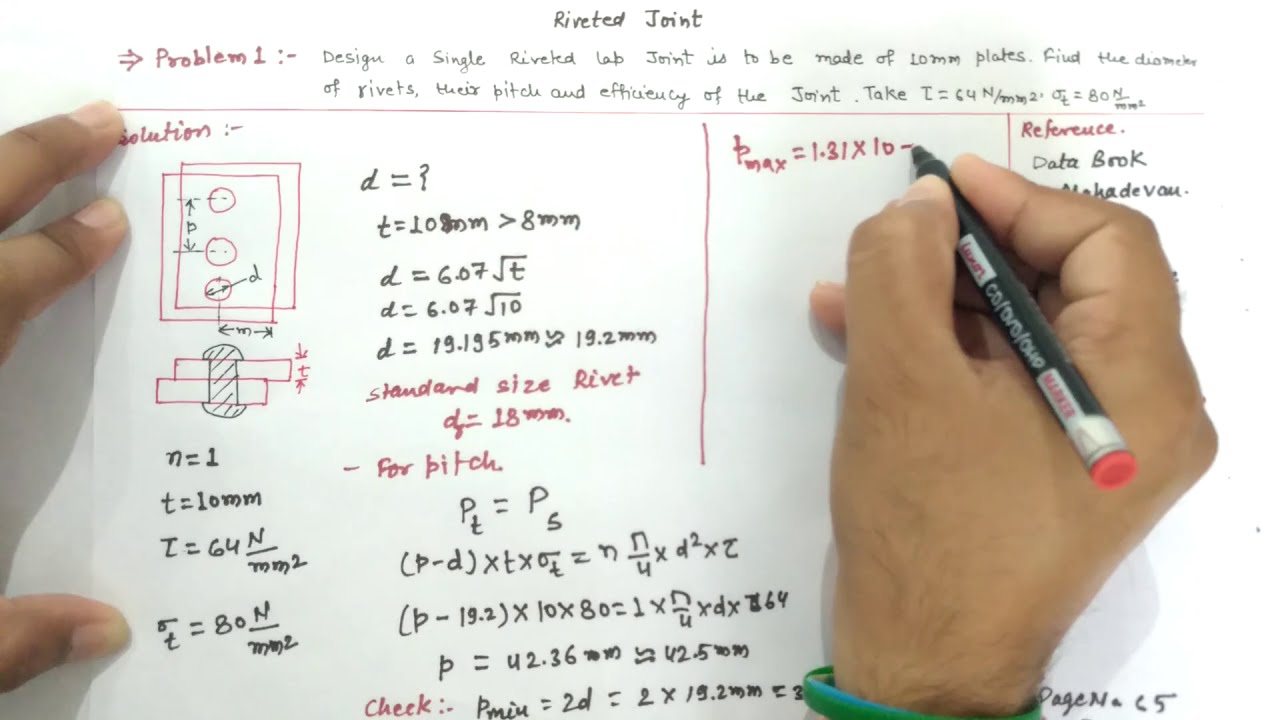 Riveted Joint
⇒ Problem 1 :- Design a Single Riveted lap Joint is to be made of 10mm plates. Find the diameter
of rivets, their pitch and efficiency of the Joint. Take τ = 64 N/mm2, σt = 80 N/mm2
solution :-
p
d
m
t
n = 1
t = 10mm
τ = 64 N/mm2
σt = 80 N/mm2
d = ?
t = 10mm > 8mm
d = 6.07√t
d = 6.07√10
d = 19.195mm ≈ 19.2mm
standard size Rivet
d = 18mm.
- For pitch.
Pt = Ps
(p-d) × t × σt = n π/4 × d² × τ
(p - 19.2) × 10 × 80 = 1 × π/4 × d × 64
p = 42.36mm ≈ 42.5mm
Check :- pmin = 2d = 2 × 19.2mm = 3
Pmax = 1.31 × 10 -
Reference.
Data Book
Mahadevan.
Page No 65
LUXOR CD/DVD/OHP MARKER